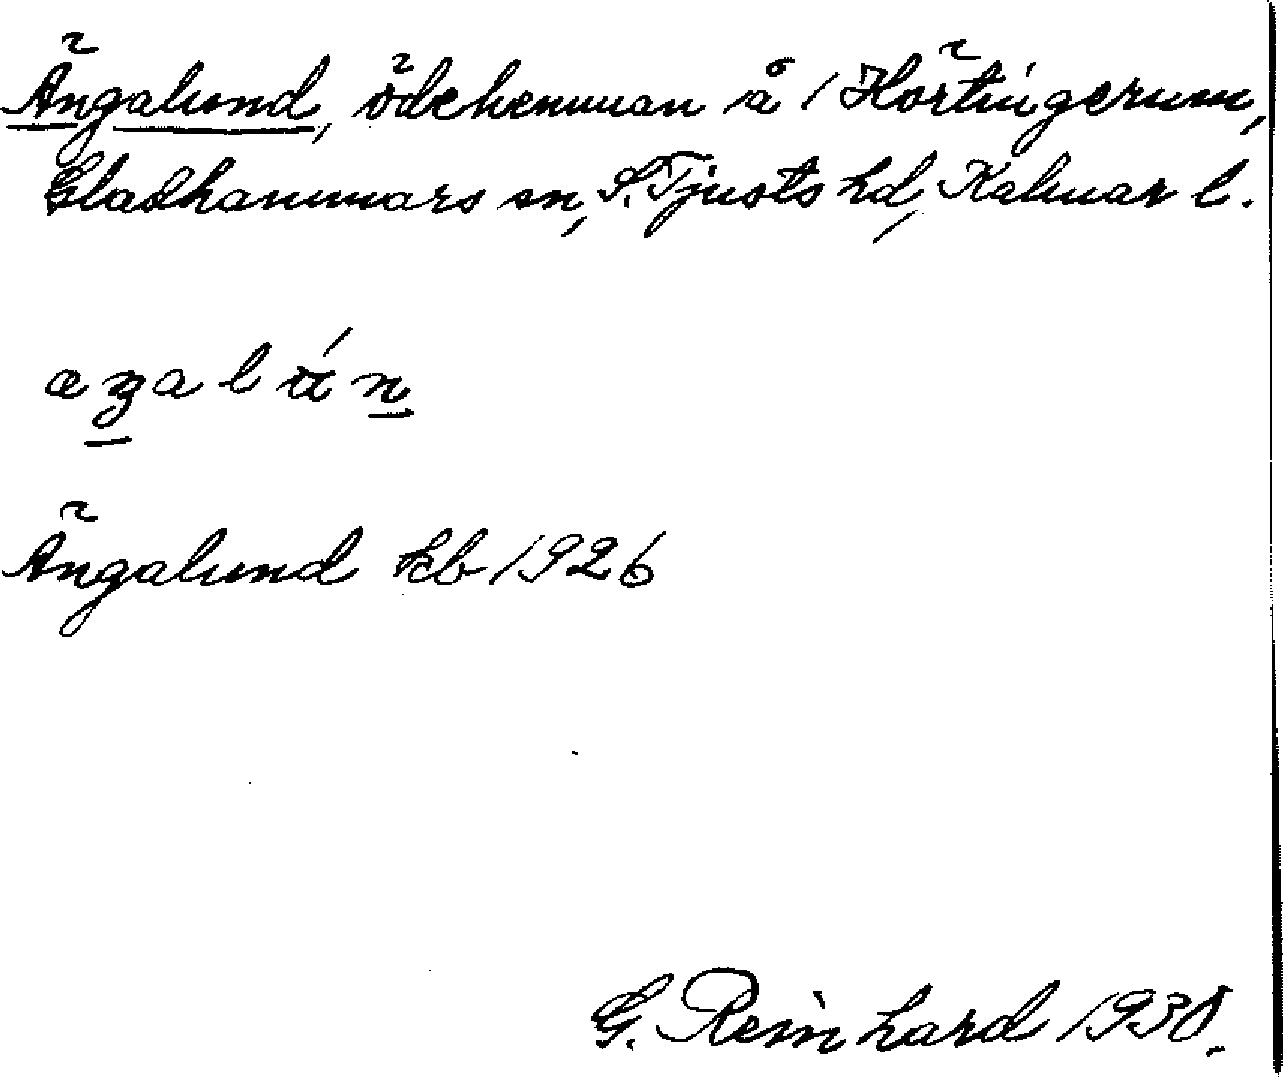 Ängalund, ödehemman å / Hörtingerum,
Gladhammars sn, S. Tjusts hd, Kalmar l.
Ängalund kb 1926
G. Reinhard 1930.